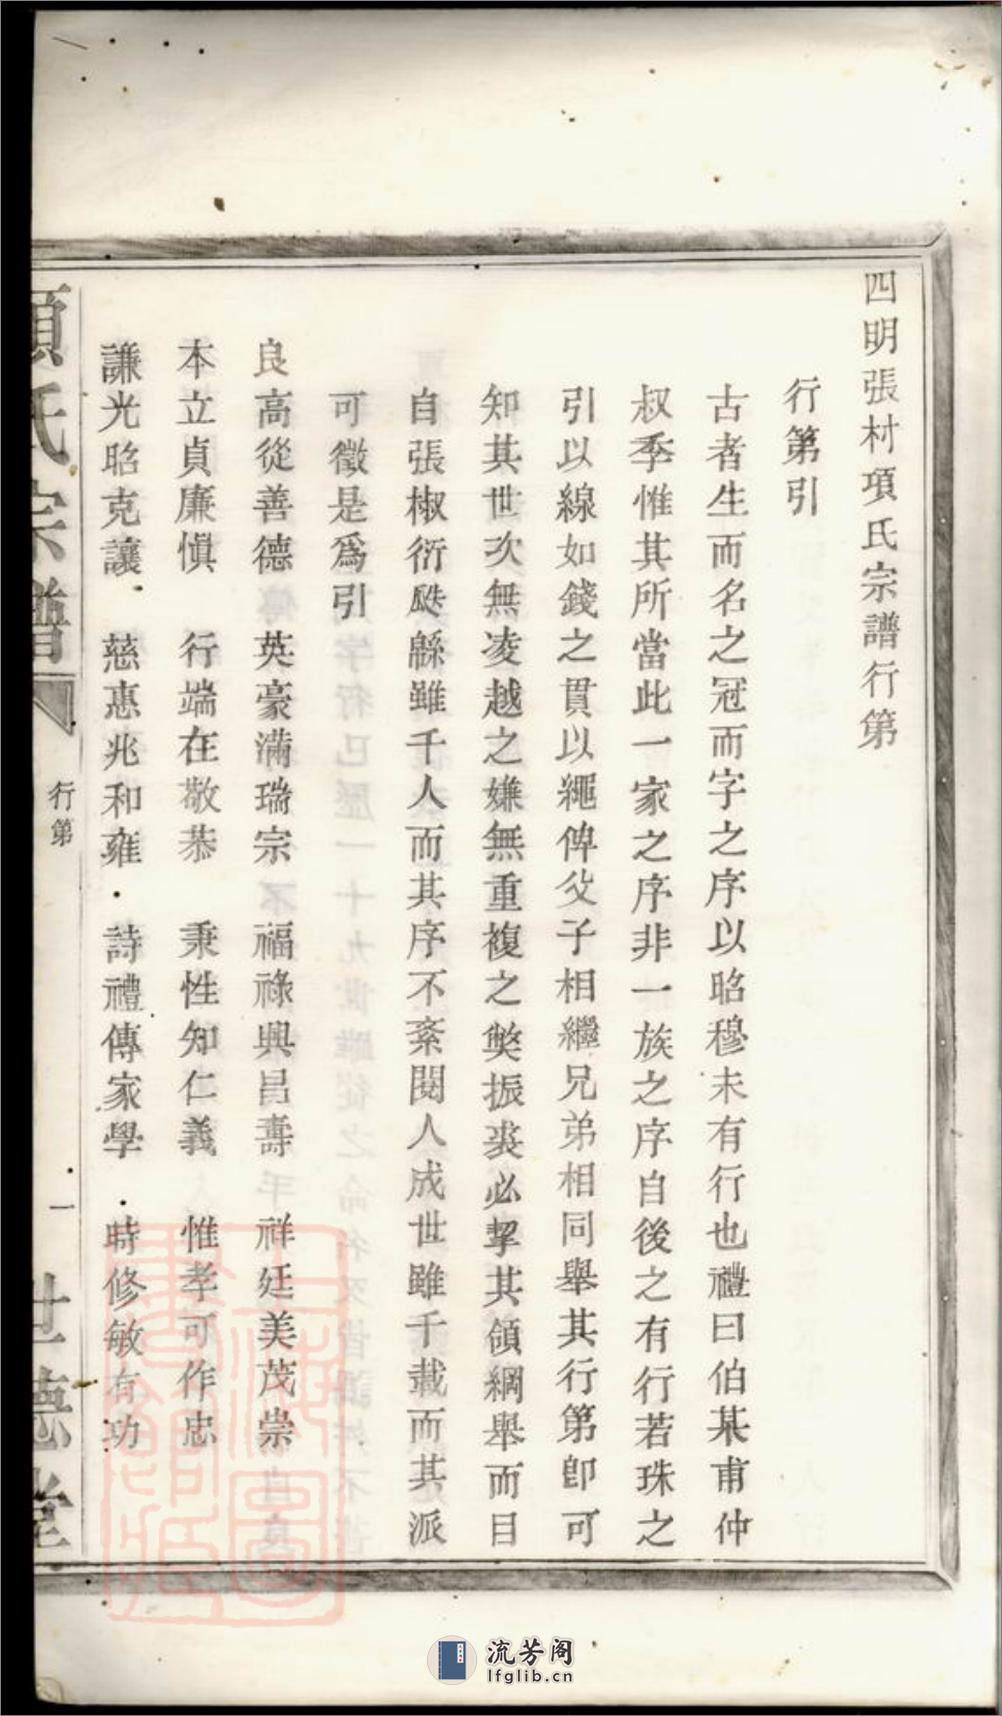 四明張村項氏宗譜行第
行第引
古者生而名之冠而字之序以昭穆未有行也禮曰伯某甫仲
叔季惟其所當此一家之序非一族之序自後之有行若珠之
引以線如錢之貫以繩俾父子相繼兄弟相同舉其行第卽可
知其世次無凌越之嫌無重複之獘振裘必挈其領綱舉而目
自張椒衍瓞緜雖千人而其序不紊閱人成世雖千載而其派
可徵是爲引
良高從善德 英豪滿瑞宗 福祿興昌壽 祥廷美茂崇
本立貞廉愼 行端在敬恭 秉性知仁義 惟孝可作忠
謙光昭克讓 慈惠兆和雍 詩禮傳家學 時修敏有功
項氏宗譜 行第 一 世德堂
上海圖書館藏
流芳阁
lfglib.cn